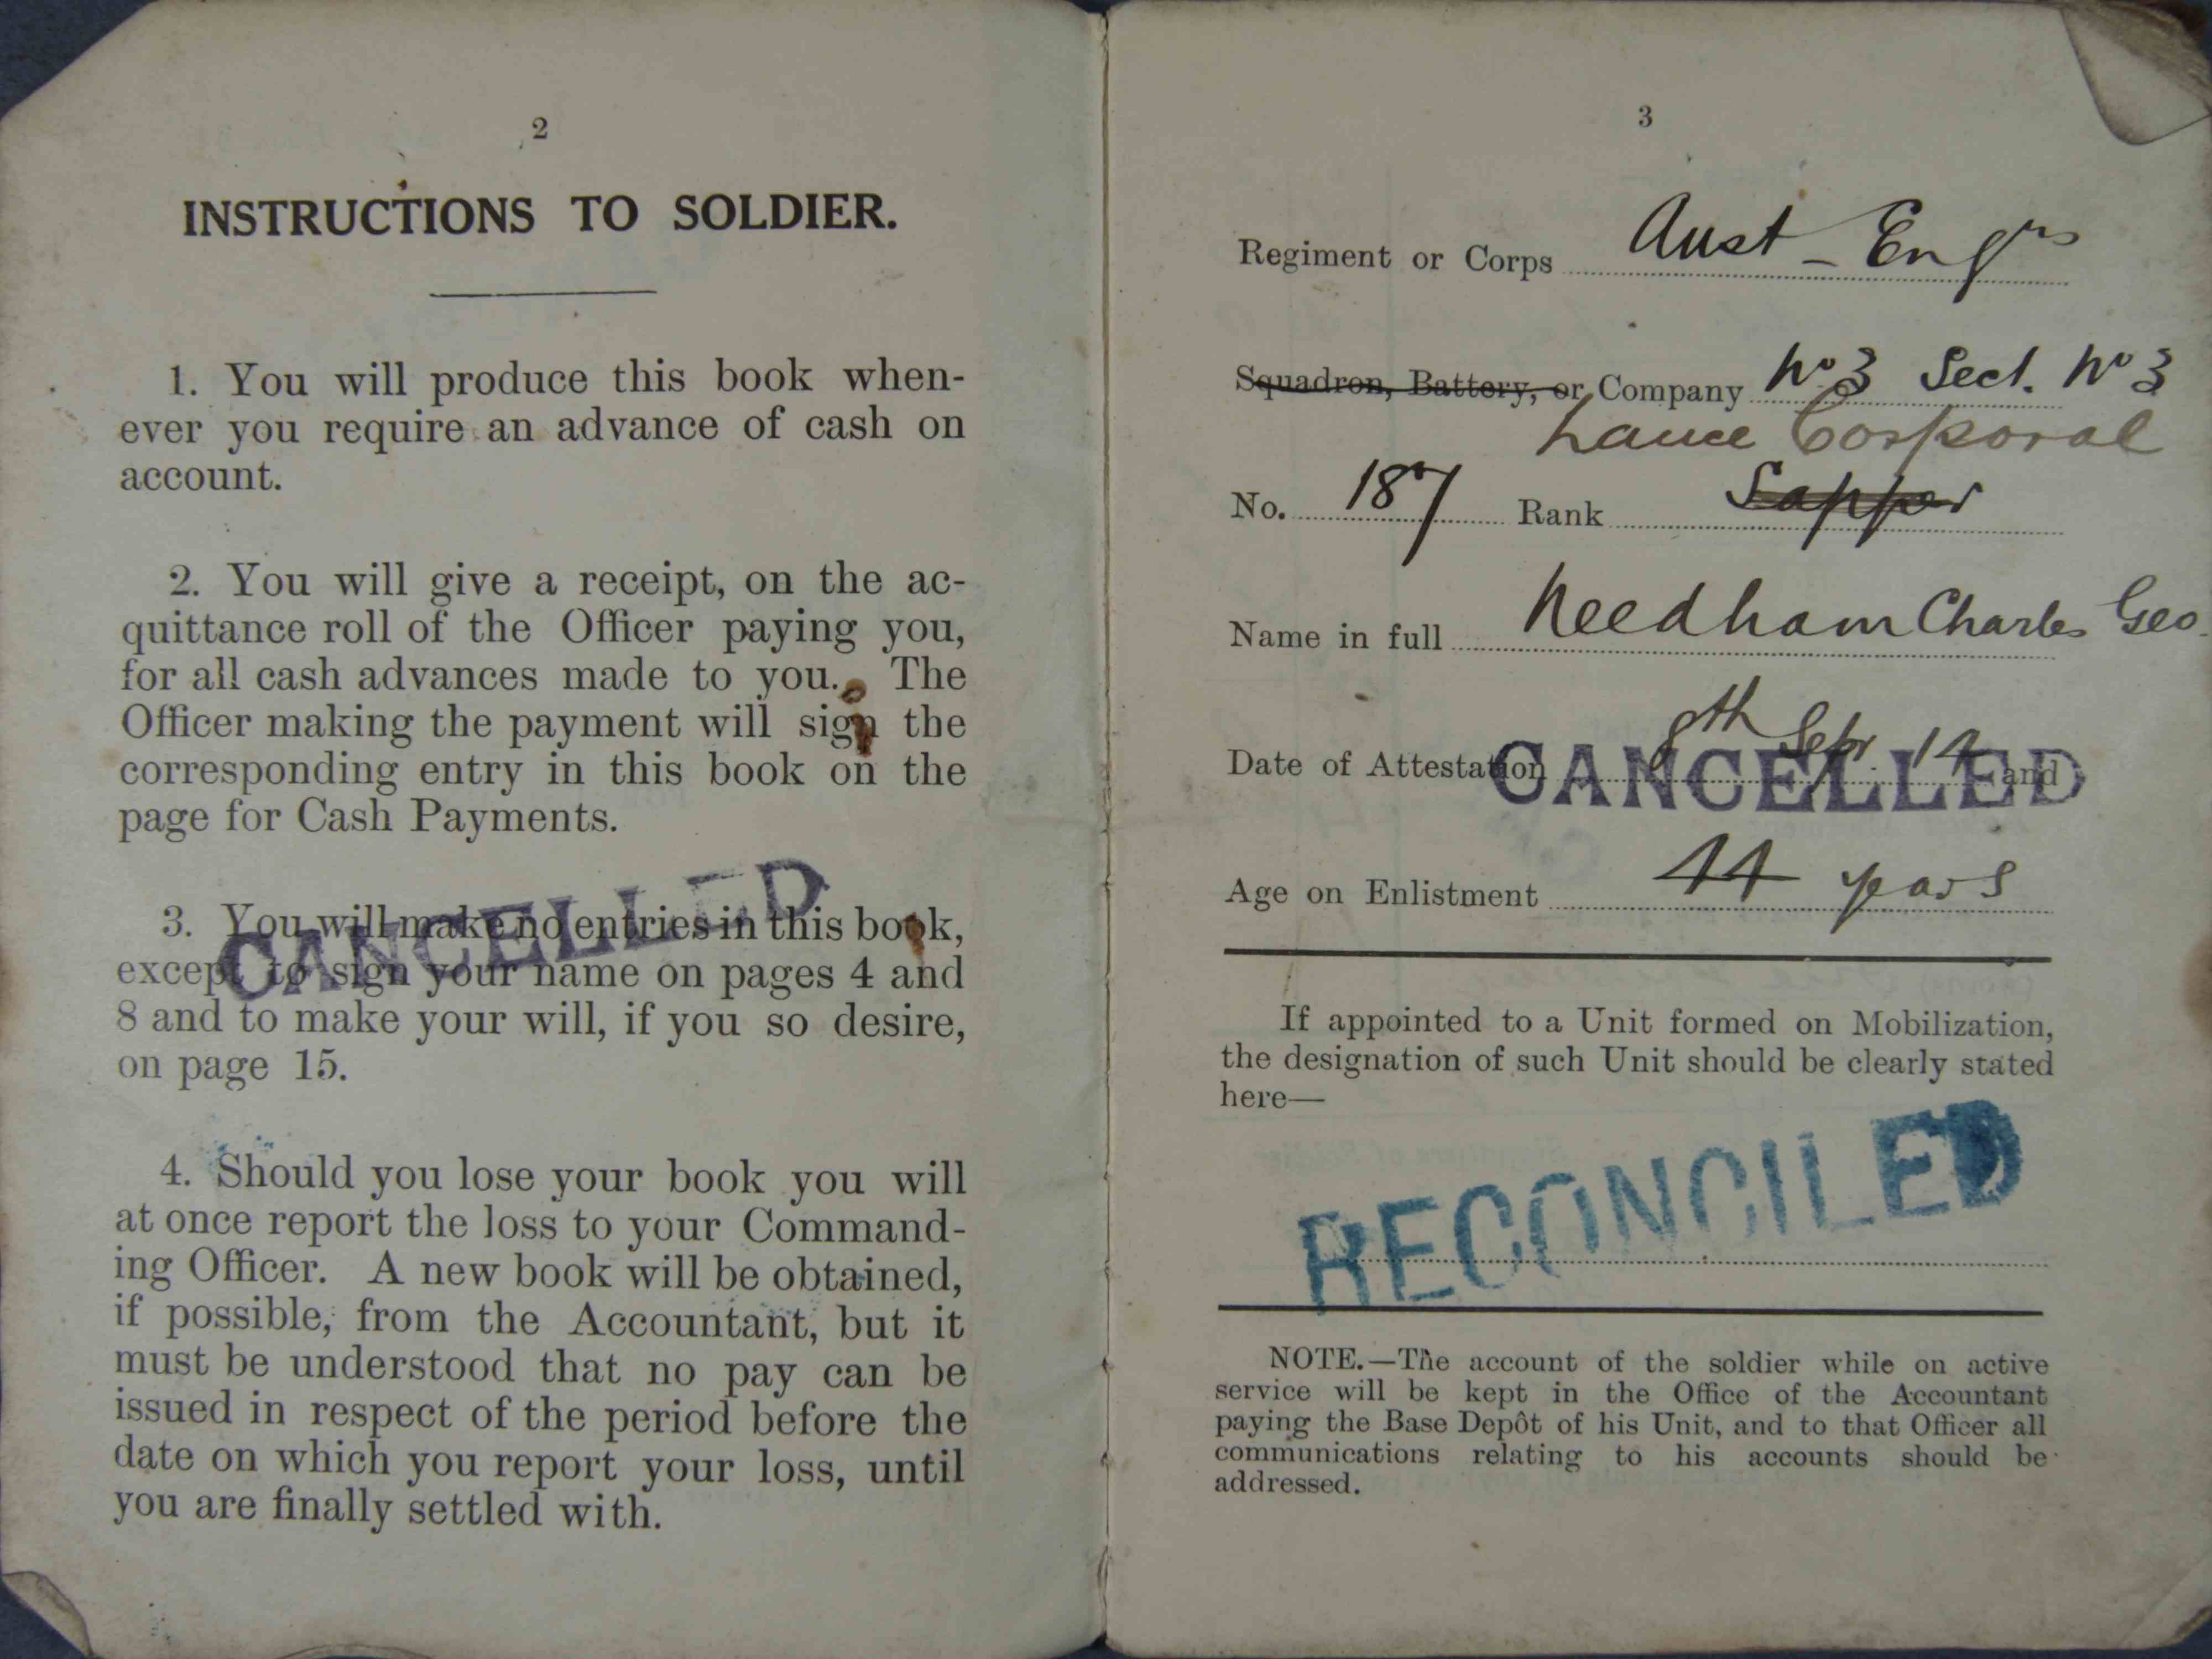 2
INSTRUCTIONS TO SOLDIER.
1. You will produce this book when-
ever you require an advance of cash on
account.
2. You will give a receipt, on the ac-
quittance roll of the Officer paying you,
for all cash advances made to you. The
Officer making the payment will sign the
corresponding entry in this book on the
page for Cash Payments.
CANCELLED
3. You will make no entries in this book,
except to sign your name on pages 4 and
8 and to make your will, if you so desire,
on page 15.
4. Should you lose your book you will
at once report the loss to your Command-
ing Officer. A new book will be obtained,
if possible, from the Accountant, but it
must be understood that no pay can be
issued in respect of the period before the
date on which you report your loss, until
you are finally settled with.
3
Regiment or Corps Aust - Engrs
Squadron, Battery, or Company No 3 Sect. No 3
Lance Corporal
No. 187 Rank Sapper
Name in full Needham Charles Geo
Date of Attestation 8th Sepr. 14 and
CANCELLED
Age on Enlistment 44 years
If appointed to a Unit formed on Mobilization,
the designation of such Unit should be clearly stated
here—
RECONCILED
NOTE.—The account of the soldier while on active
service will be kept in the Office of the Accountant
paying the Base Depôt of his Unit, and to that Officer all
communications relating to his accounts should be
addressed.